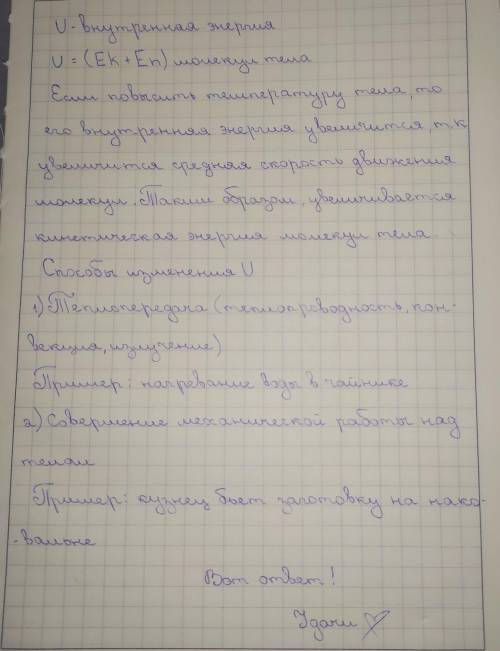 U - внутренная энергия
U = (Ек + Еп) молекул тела
Если повысить температуру тела, то
его внутренняя энергия увеличится, т.к
увеличится средняя скорость движения
молекул. Таким образом, увеличивается
кинетическая энергия молекул тела
Способы изменения U
1) Теплопередача (теплопроводность, кон-
векция, излучение)
Пример: нагревание воды в чайнике
2) Совершение механической работы над
телом
Пример: кузнец бьет заготовку на нако-
-вальне
Вот ответ!
Удачи